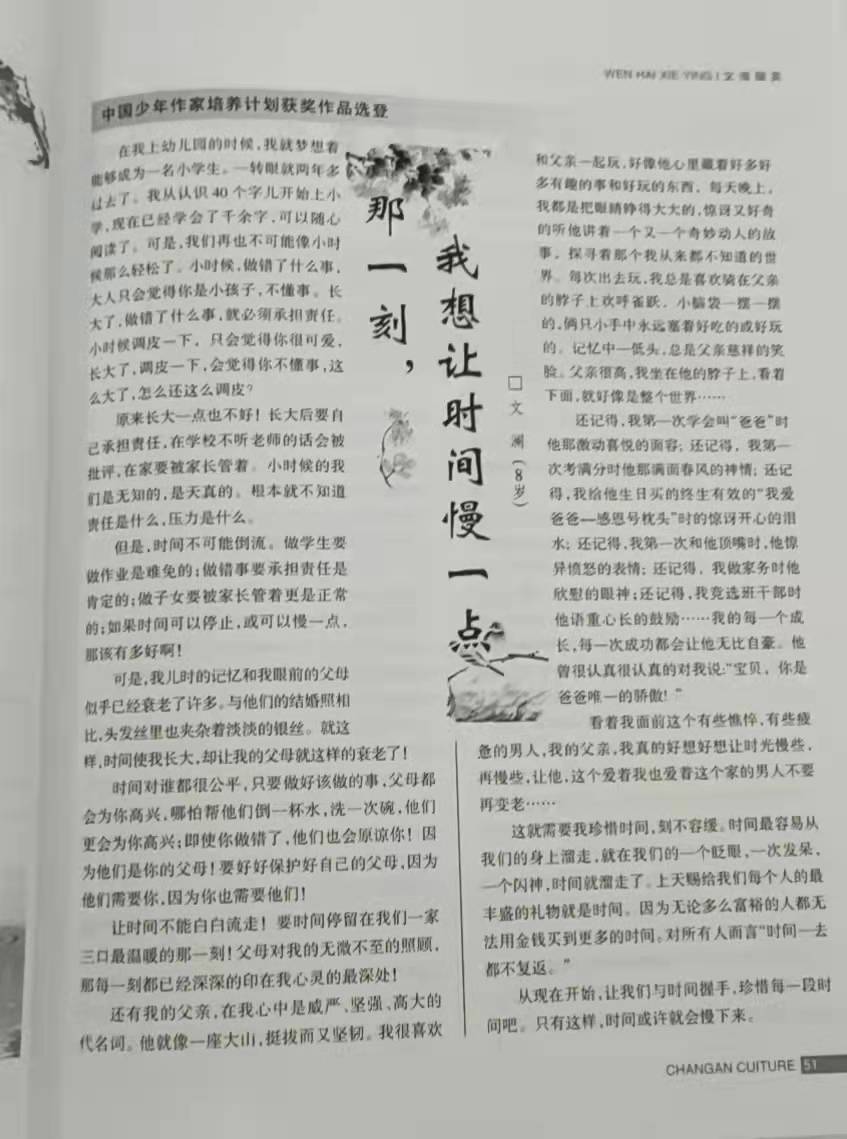 WEN HAI XIE YING | 文海撷英
中国少年作家培养计划获奖作品选登
那一刻，
我想让时间慢一点
□文渊（8岁）
在我上幼儿园的时候，我就梦想着
能够成为一名小学生。一转眼就两年多
过去了。我从认识40个字儿开始上小
学，现在已经学会了千余字，可以随心
阅读了。可是，我们再也不可能像小时
候那么轻松了。小时候，做错了什么事，
大人只会觉得你是小孩子，不懂事。长
大了，做错了什么事，就必须承担责任。
小时候调皮一下，只会觉得你很可爱，
长大了，调皮一下，会觉得你不懂事，这
么大了，怎么还这么调皮？
原来长大一点也不好！长大后要自
己承担责任，在学校不听老师的话会被
批评，在家要被家长管着。小时候的我
们是无知的，是天真的。根本就不知道
责任是什么，压力是什么。
但是，时间不可能倒流。做学生要
做作业是难免的；做错事要承担责任是
肯定的；做子女要被家长管着更是正常
的；如果时间可以停止，或可以慢一点，
那该有多好啊！
可是，我儿时的记忆和我眼前的父母
似乎已经衰老了许多。与他们的结婚照相
比，头发丝里也夹杂着淡淡的银丝。就这
样，时间使我长大，却让我的父母就这样的衰老了！
时间对谁都很公平，只要做好该做的事，父母都
会为你高兴，哪怕帮他们倒一杯水，洗一次碗，他们
更会为你高兴；即使你做错了，他们也会原谅你！因
为他们是你的父母！要好好保护好自己的父母，因为
他们需要你，因为你也需要他们！
让时间不能白白流走！要时间停留在我们一家
三口最温暖的那一刻！父母对我的无微不至的照顾，
那每一刻都已经深深的印在我心灵的最深处！
还有我的父亲，在我心中是威严、坚强、高大的
代名词。他就像一座大山，挺拔而又坚韧。我很喜欢
和父亲一起玩，好像他心里藏着好多好
多有趣的事和好玩的东西，每天晚上，
我都是把眼睛睁得大大的，惊讶又好奇
的听他讲着一个又一个奇妙动人的故
事，探寻着那个我从来都不知道的世
界。每次出去玩，我总是喜欢骑在父亲
的脖子上欢呼雀跃，小脑袋一摆一摆
的，俩只小手中永远塞着好吃的或好玩
的。记忆中一低头，总是父亲慈祥的笑
脸。父亲很高，我坐在他的脖子上，看着
下面，就好像是整个世界……
还记得，我第一次学会叫“爸爸”时
他那激动喜悦的面容；还记得，我第一
次考满分时他那满面春风的神情；还记
得，我给他生日买的终生有效的“我爱
爸爸—感恩号枕头”时的惊讶开心的泪
水；还记得，我第一次和他顶嘴时，他惊
异愤怒的表情；还记得，我做家务时他
欣慰的眼神；还记得，我竞选班干部时
他语重心长的鼓励……我的每一个成
长，每一次成功都会让他无比自豪。他
曾很认真很认真的对我说：“宝贝，你是
爸爸唯一的骄傲！”
看着我面前这个有些憔悴，有些疲
惫的男人，我的父亲，我真的好想好想让时光慢些，
再慢些，让他，这个爱着我也爱着这个家的男人不要
再变老……
这就需要我珍惜时间，刻不容缓。时间最容易从
我们的身上溜走，就在我们的一个眨眼，一次发呆，
一个闪神，时间就溜走了。上天赐给我们每个人的最
丰盛的礼物就是时间。因为无论多么富裕的人都无
法用金钱买到更多的时间。对所有人而言“时间一去
都不复返。”
从现在开始，让我们与时间握手，珍惜每一段时
间吧。只有这样，时间或许就会慢下来。
CHANGAN CUITURE 51